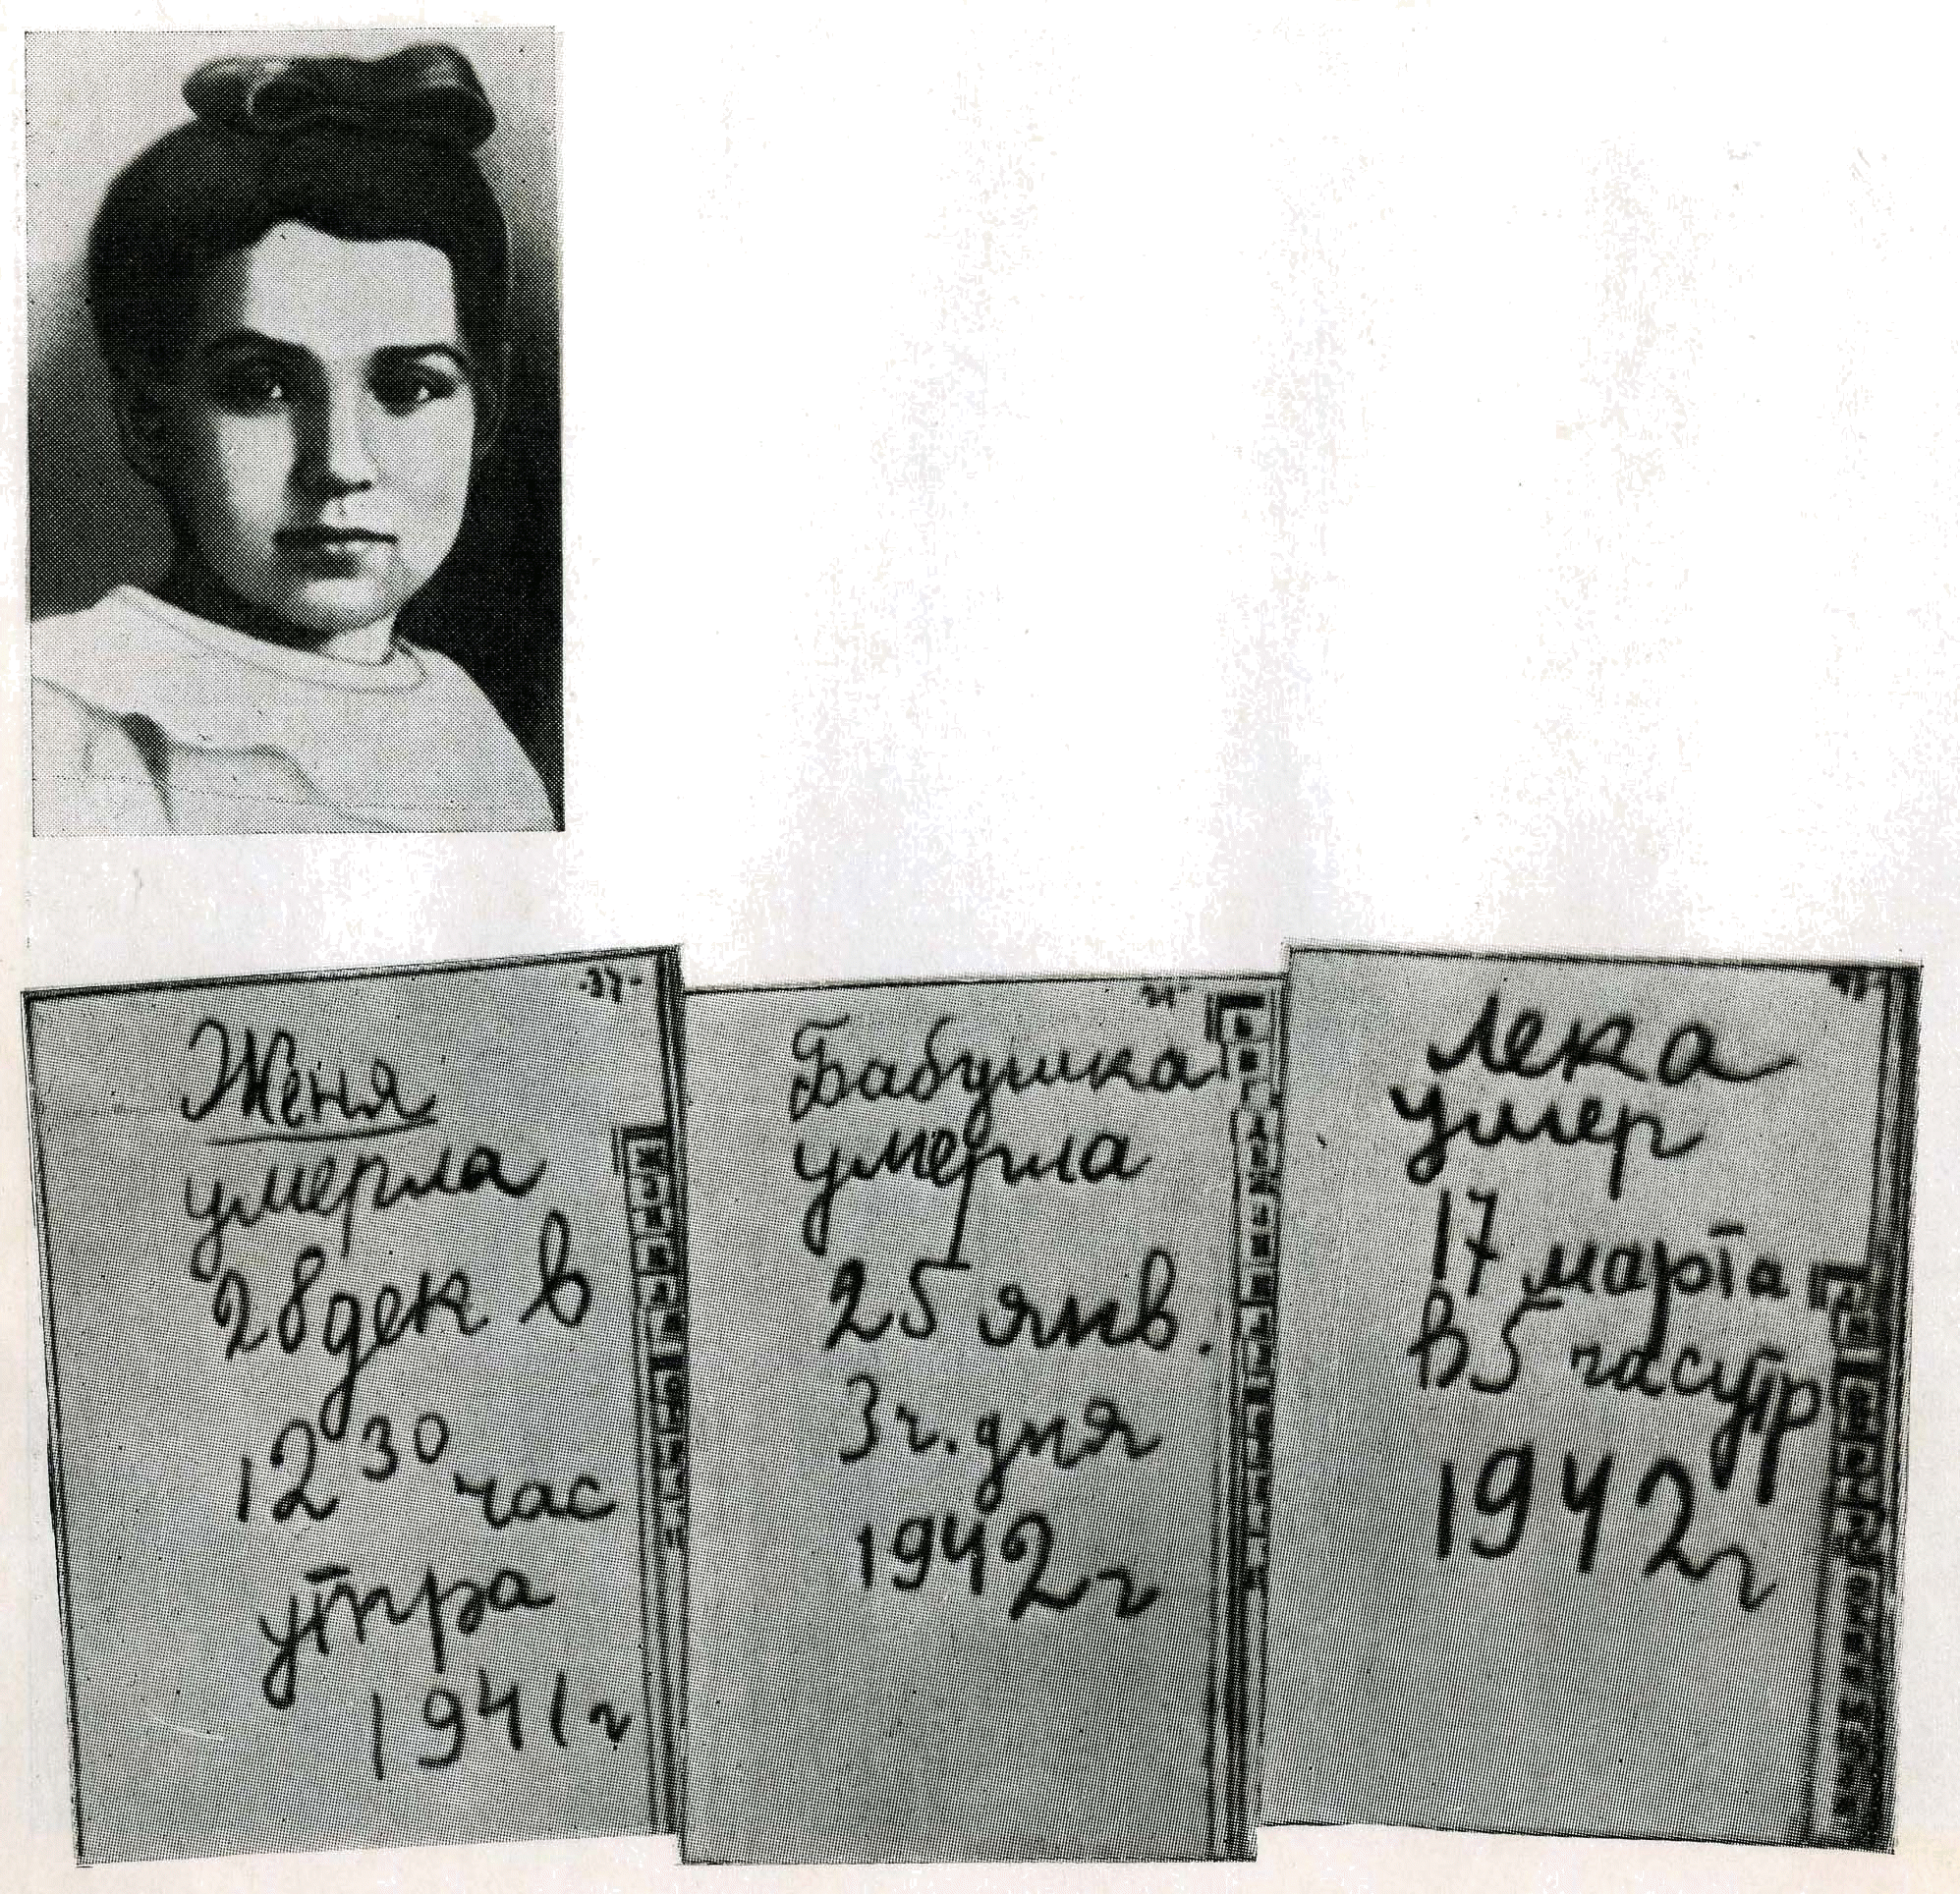 Женя
умерла
28 дек в
12 30 час
утра
1941 г
Бабушка
умерла
25 янв.
3 ч. дня
1942 г
Лека
умер
17 марта
в 5 час утр
1942 г